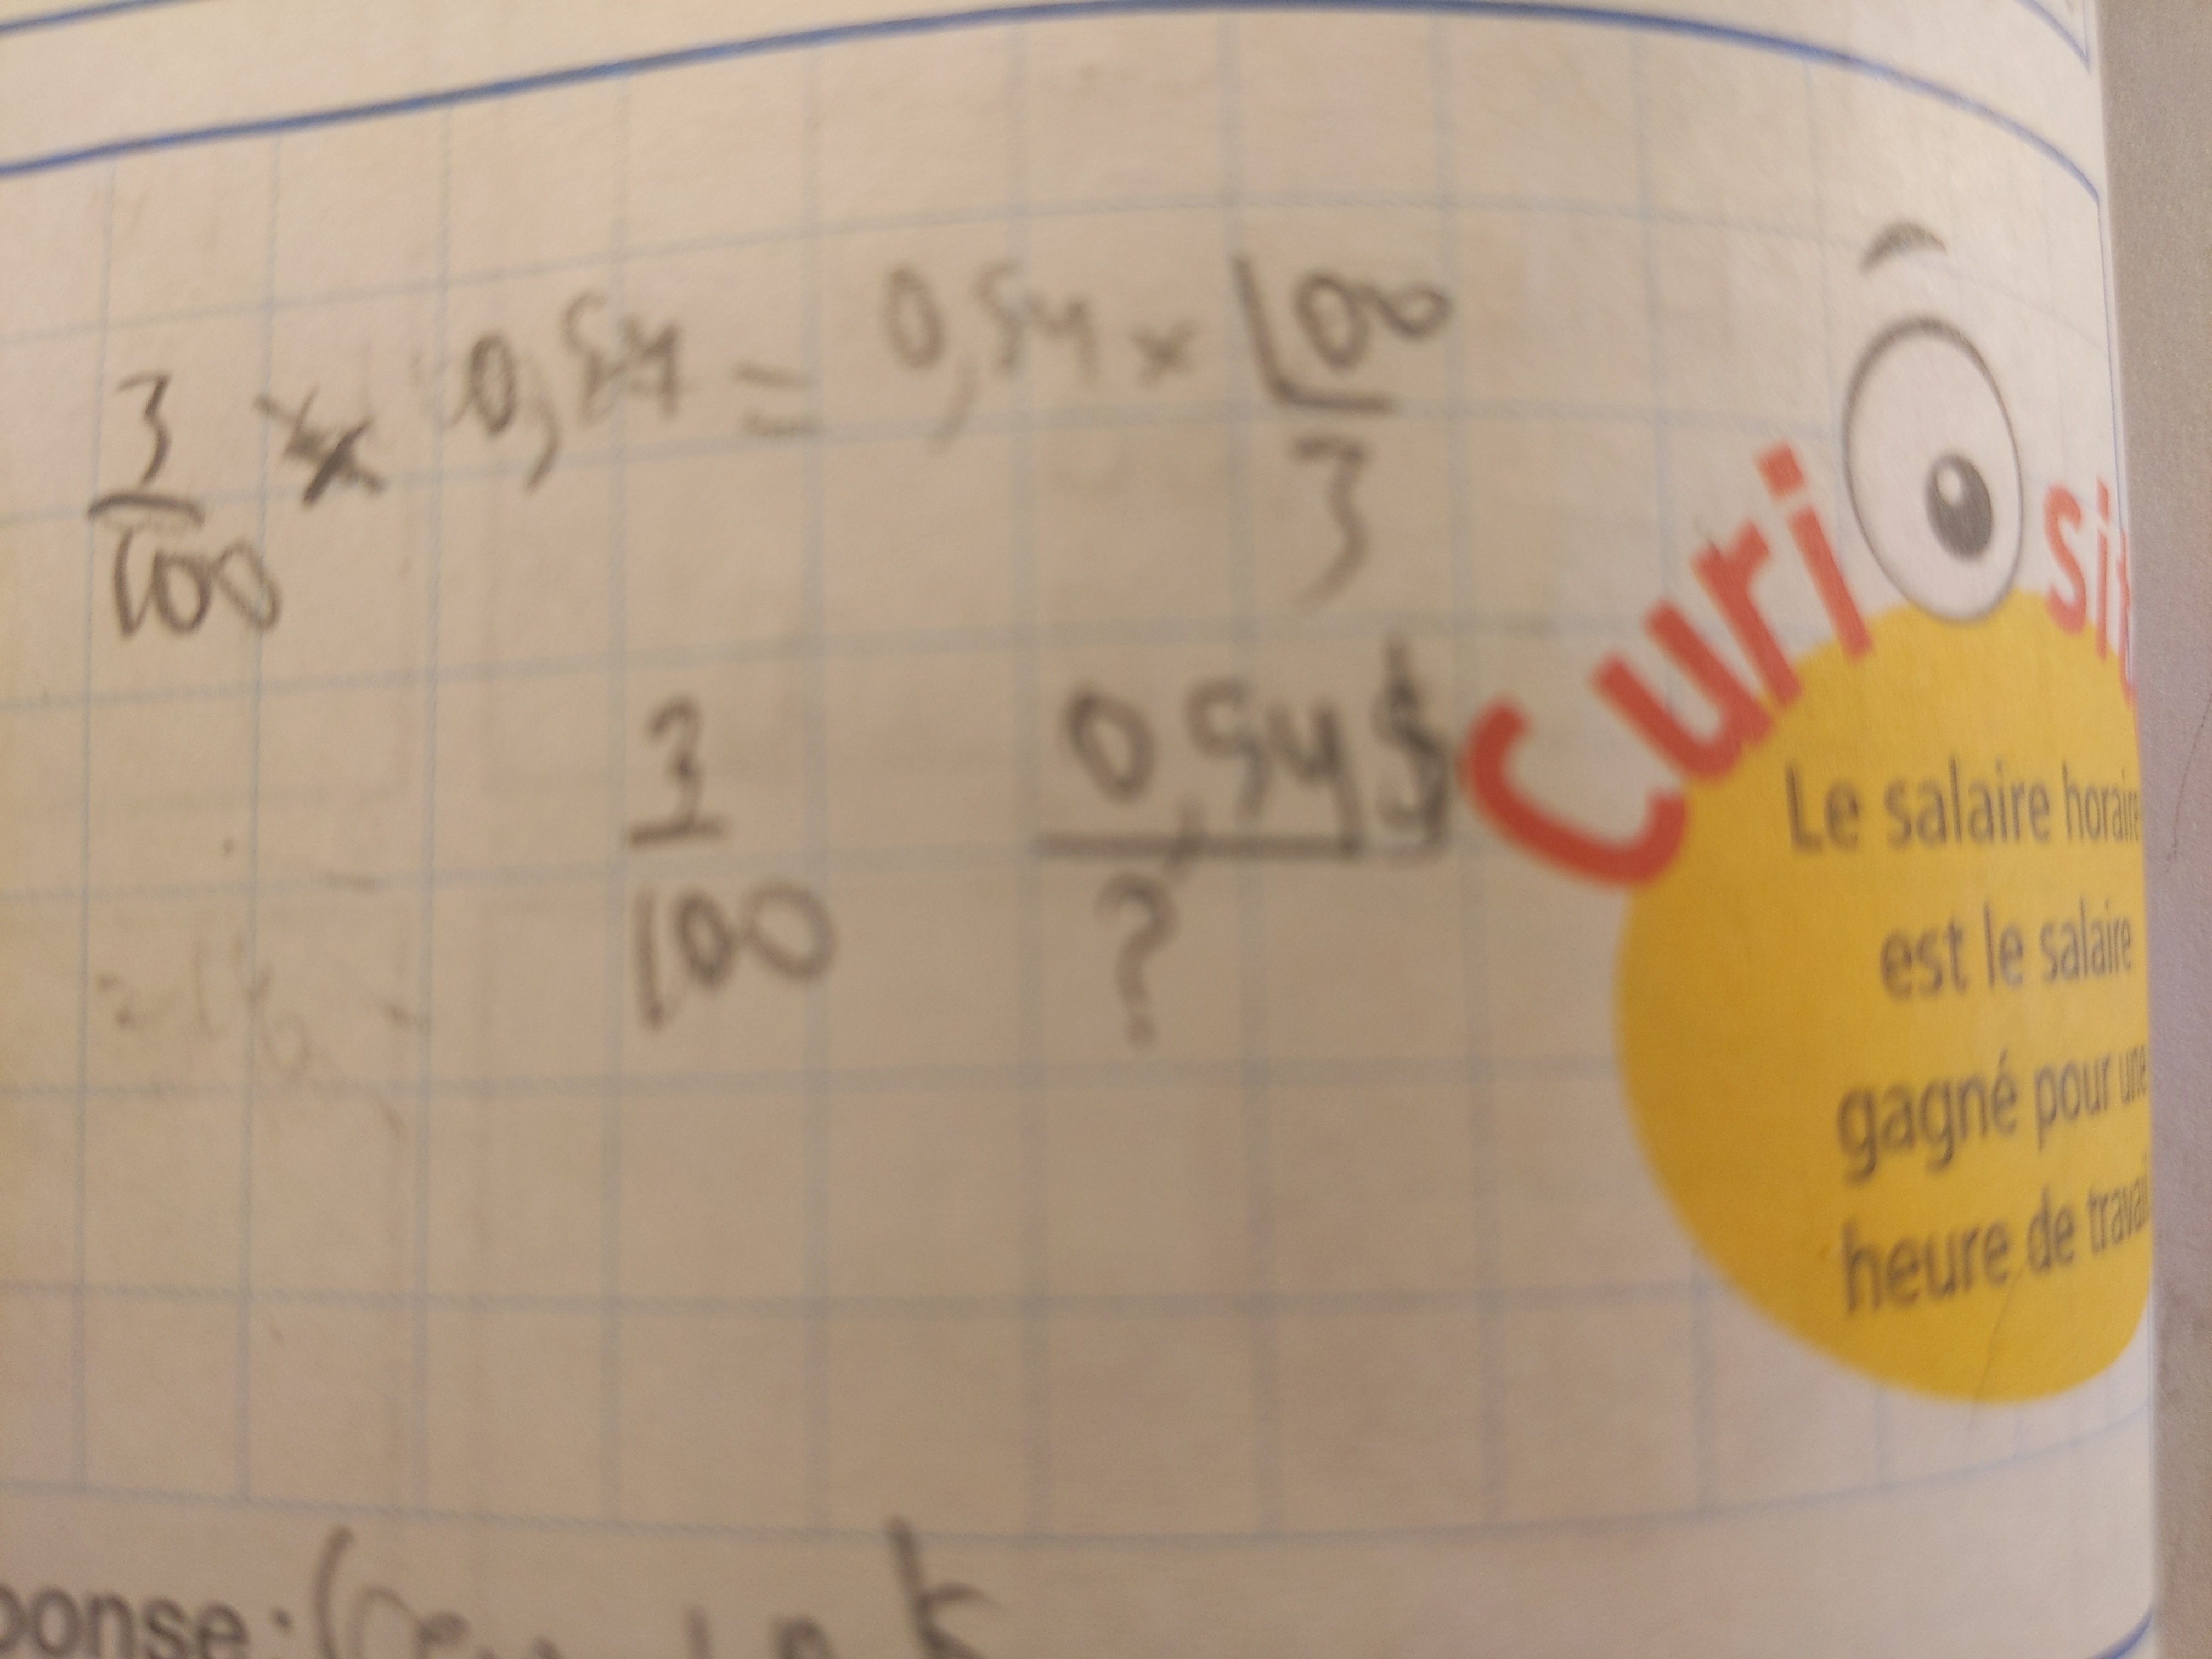 3/100 × 0,54 = 0,54 × 100/3
3/100 0,54$/?
Curiosit
Le salaire horaire
est le salaire
gagné pour une
heure de travail
ponse :